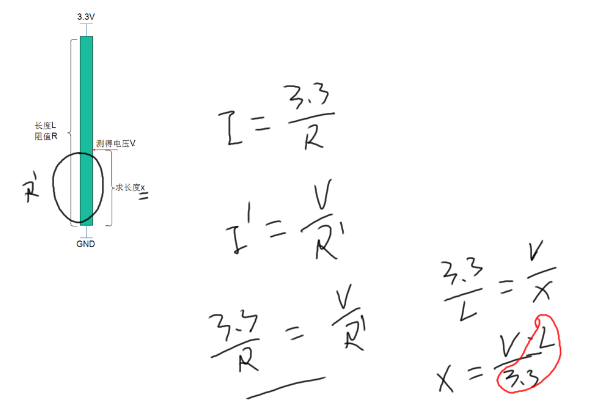 3.3V
长度L
阻值R
测得电压V
求长度x
GND
R'
I = 3.3/R
I' = V/R'
3.3/R = V/R'
3.3/L = V/X
X = V·L/3.3